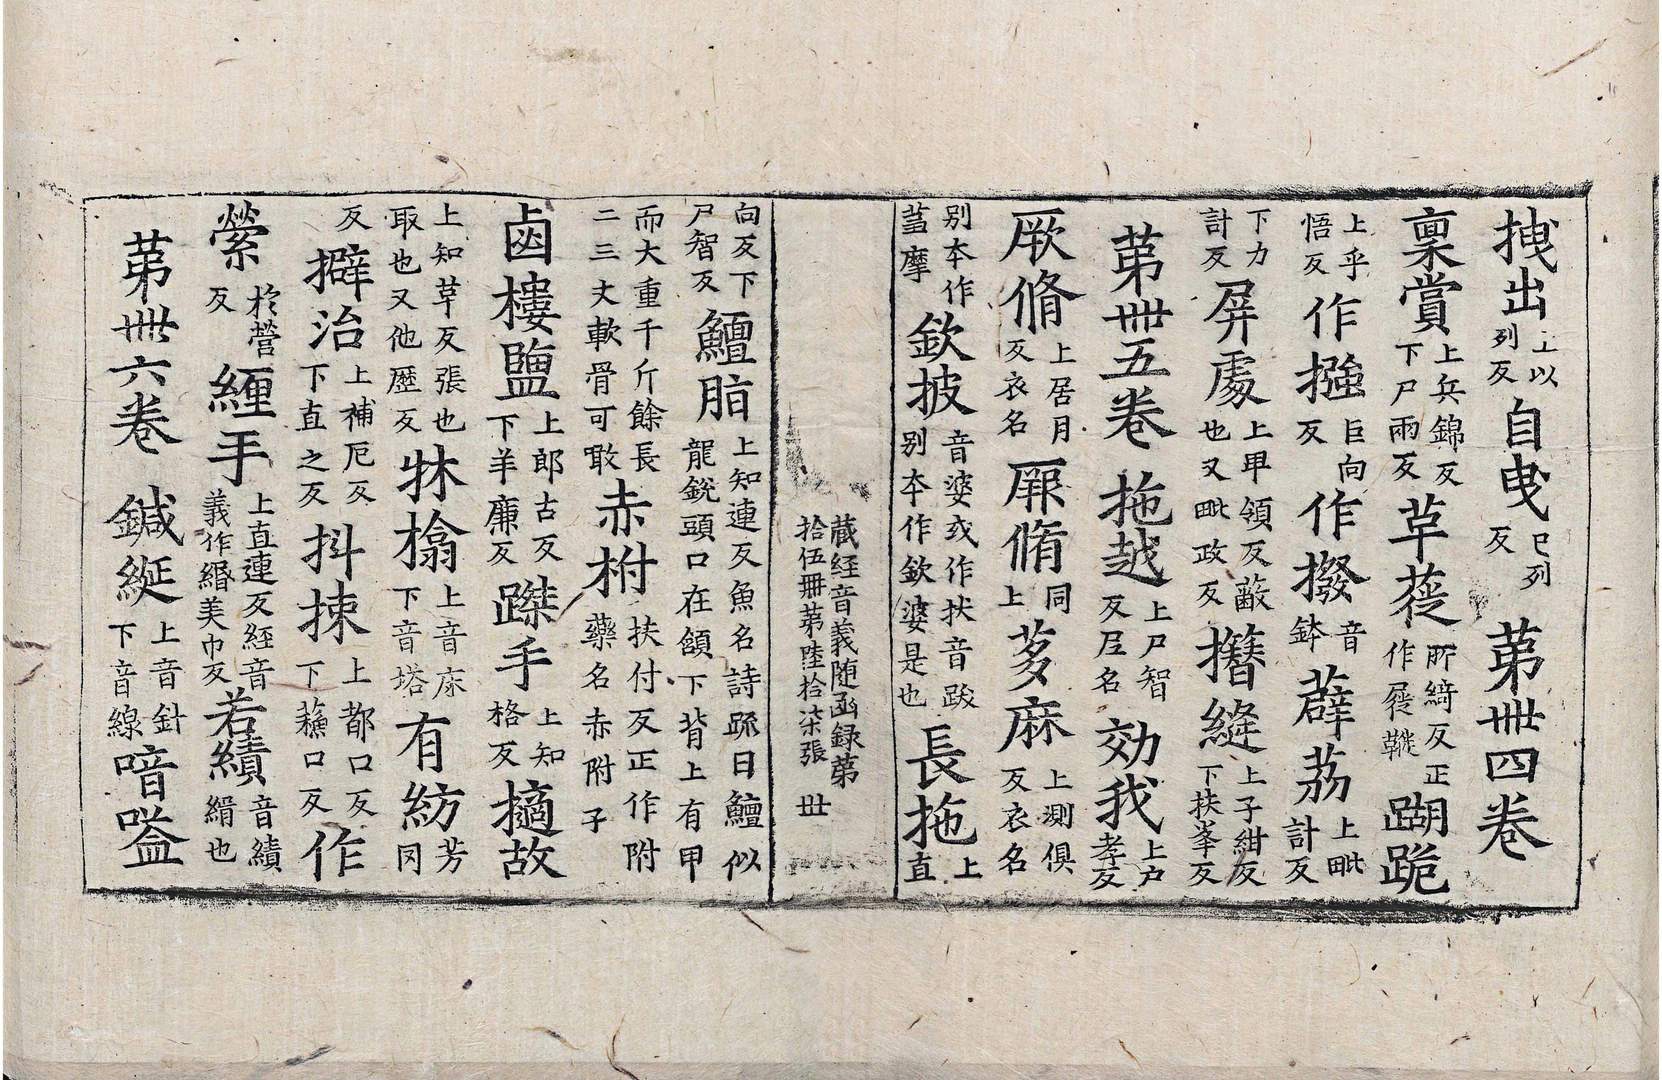 拽出上以列反自曳已列反第卅四卷
稟賞上兵錦反下尸兩反草蓰所綺反正作屣鞾䠒跪
上乎悟反作摾巨向反作撥音鉢薜荔上毗計反
下力計反屏處上甲領反蔽也又毗政反㩈縫上子紺反下扶峯反
第卅五卷拖越上尸智反𡱈名効我上户孝反
厥脩上居月反衣名㕍脩同上䓈麻上測俱反衣名
别本作萓摩欽披音婆或作扶音跋别本作欽婆是也長拖上直
藏経音義随函録第拾伍冊苐陸拾柒張 廿
向反下尸智反鱣脂上知連反魚名詩䟽曰鱣似龍銳頭口在頷下背上有甲
而大重千斤餘長二三丈軟骨可噉赤柎扶付反正作附藥名赤附子
鹵樓䀋上郎古反下羊廉反蹀手上知格反擿故
上知草反張也取也又他歷反牀㯓上音床下音塔有紡芳冈
反擗治上補厄反下直之反抖捒上都口反下蘓口反作
縈於營反纏手上直連反経音義作緡美巾反若績音績緝也
苐卅六卷 鍼綖上音針下音線喑嗌